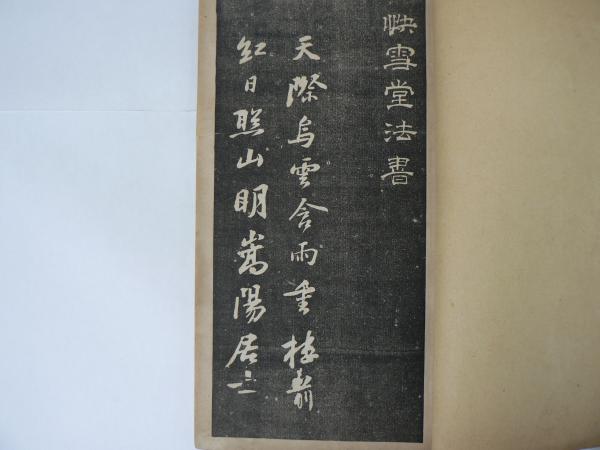 快雪堂法書
天際烏雲含雨重樓前
紅日照山明嵩陽居士